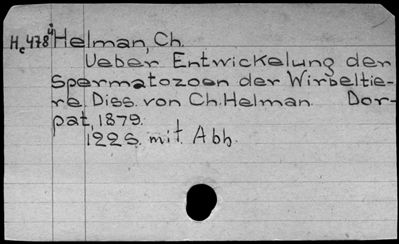 Hc478ψ Helman, Ch.
Ueber Entwickelung der
Spermatozoen der Wirbeltie-
re. Diss. von Ch. Helman. Dor-
pat, 1879.
122 S. mit Abb.